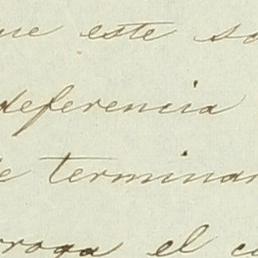 ue este so
deferencia
e terminan
rroga el co